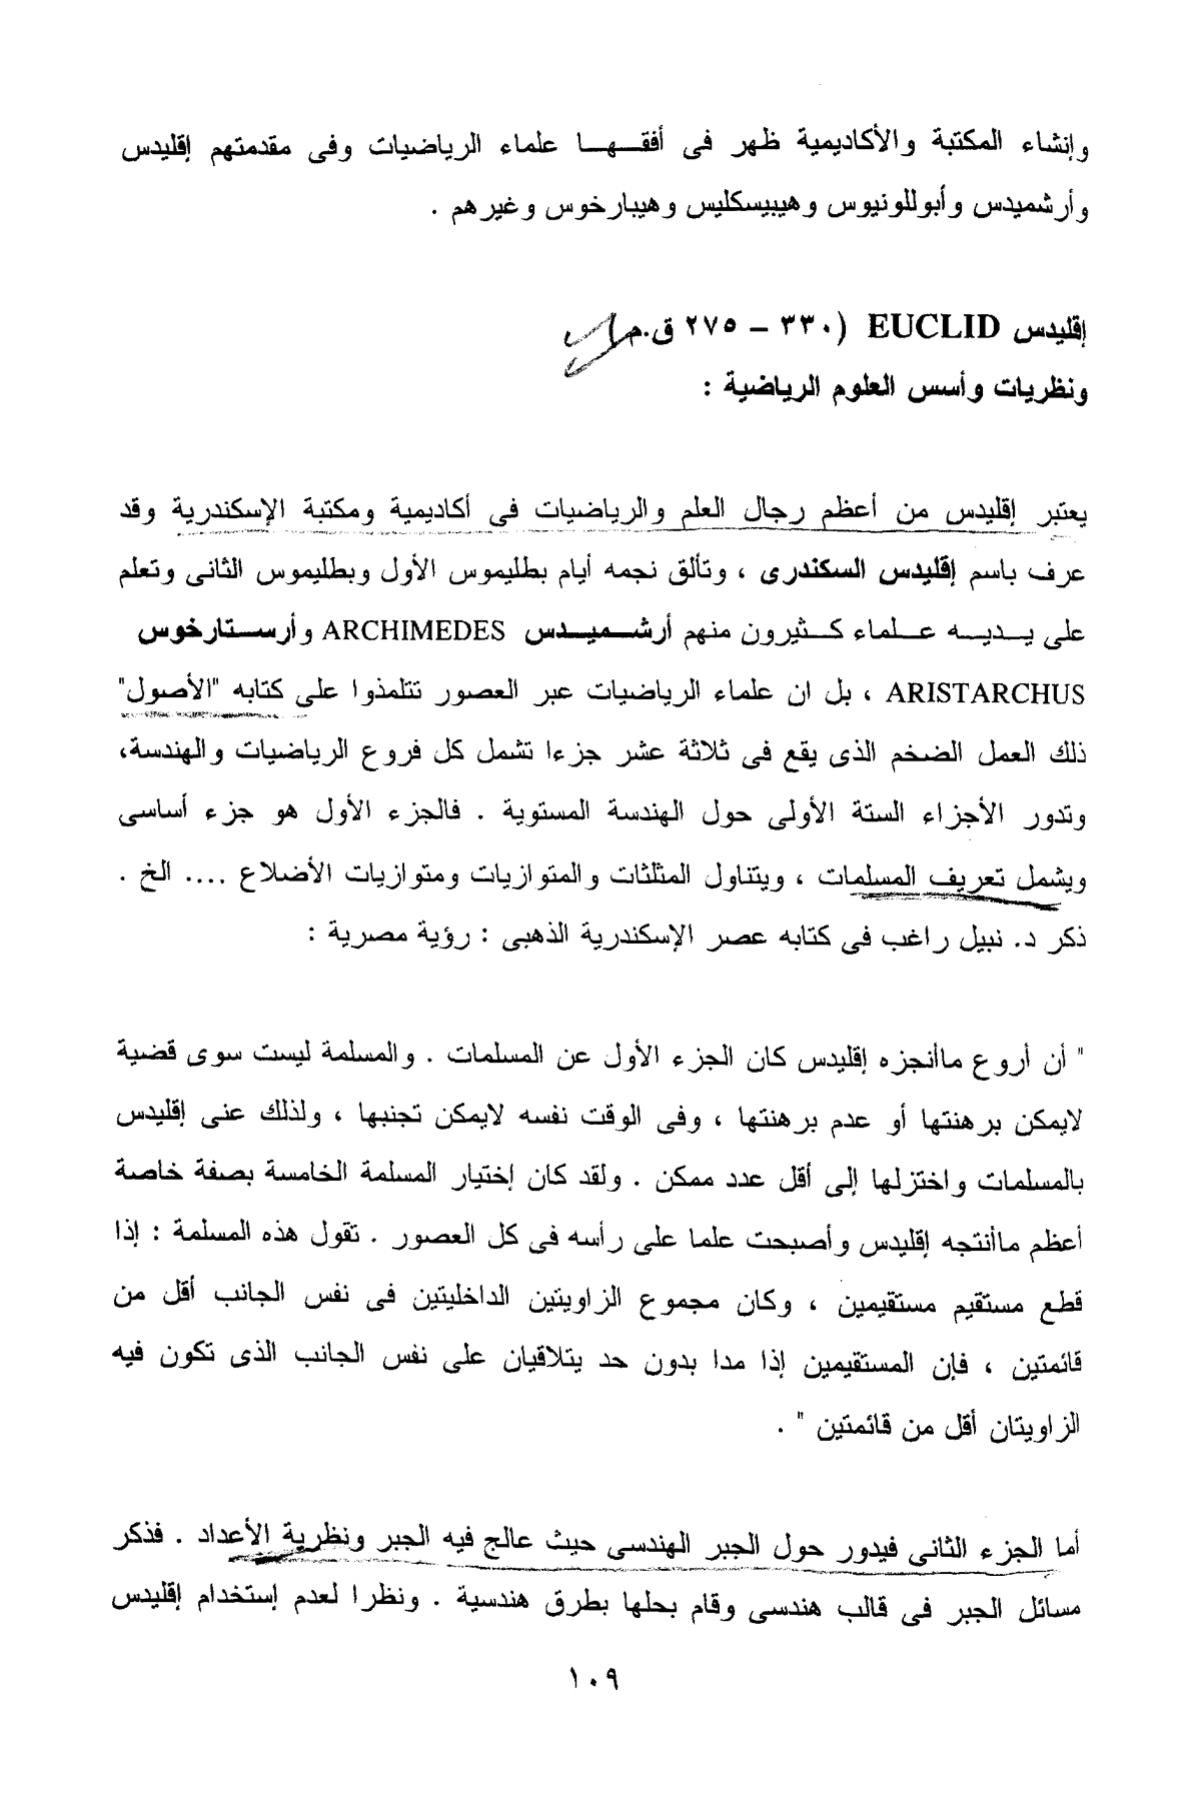 وإنشاء المكتبة والأكاديمية ظهر فى أفقـــهـــا علماء الرياضيات وفى مقدمتهم إقليدس
وأرشميدس وأبوللونيوس وهيبيسكليس وهيبارخوس وغيرهم .
إقليدس EUCLID (٣٣٠ – ٢٧٥ ق.م)
ونظريات وأسس العلوم الرياضية :
يعتبر إقليدس من أعظم رجال العلم والرياضيات فى أكاديمية ومكتبة الإسكندرية وقد
عرف باسم إقليدس السكندرى ، وتألق نجمه أيام بطليموس الأول وبطليموس الثانى وتعلم
على يـــديـــه عـــلماء كـــثيرون منهم أرشـــميـــدس ARCHIMEDES وأرســـتارخوس
ARISTARCHUS ، بل ان علماء الرياضيات عبر العصور تتلمذوا على كتابه "الأصول"
ذلك العمل الضخم الذى يقع فى ثلاثة عشر جزءا تشمل كل فروع الرياضيات والهندسة،
وتدور الأجزاء الستة الأولى حول الهندسة المستوية . فالجزء الأول هو جزء أساسى
ويشمل تعريف المسلمات ، ويتناول المثلثات والمتوازيات ومتوازيات الأضلاع .... الخ .
ذكر د. نبيل راغب فى كتابه عصر الإسكندرية الذهبى : رؤية مصرية :
" أن أروع ماأنجزه إقليدس كان الجزء الأول عن المسلمات . والمسلمة ليست سوى قضية
لايمكن برهنتها أو عدم برهنتها ، وفى الوقت نفسه لايمكن تجنبها ، ولذلك عنى إقليدس
بالمسلمات واختزلها إلى أقل عدد ممكن . ولقد كان إختيار المسلمة الخامسة بصفة خاصة
أعظم ماأنتجه إقليدس وأصبحت علما على رأسه فى كل العصور . تقول هذه المسلمة : إذا
قطع مستقيم مستقيمين ، وكان مجموع الزاويتين الداخليتين فى نفس الجانب أقل من
قائمتين ، فإن المستقيمين إذا مدا بدون حد يتلاقيان على نفس الجانب الذى تكون فيه
الزاويتان أقل من قائمتين " .
أما الجزء الثانى فيدور حول الجبر الهندسى حيث عالج فيه الجبر ونظرية الأعداد . فذكر
مسائل الجبر فى قالب هندسى وقام بحلها بطرق هندسية . ونظرا لعدم إستخدام إقليدس
١٠٩